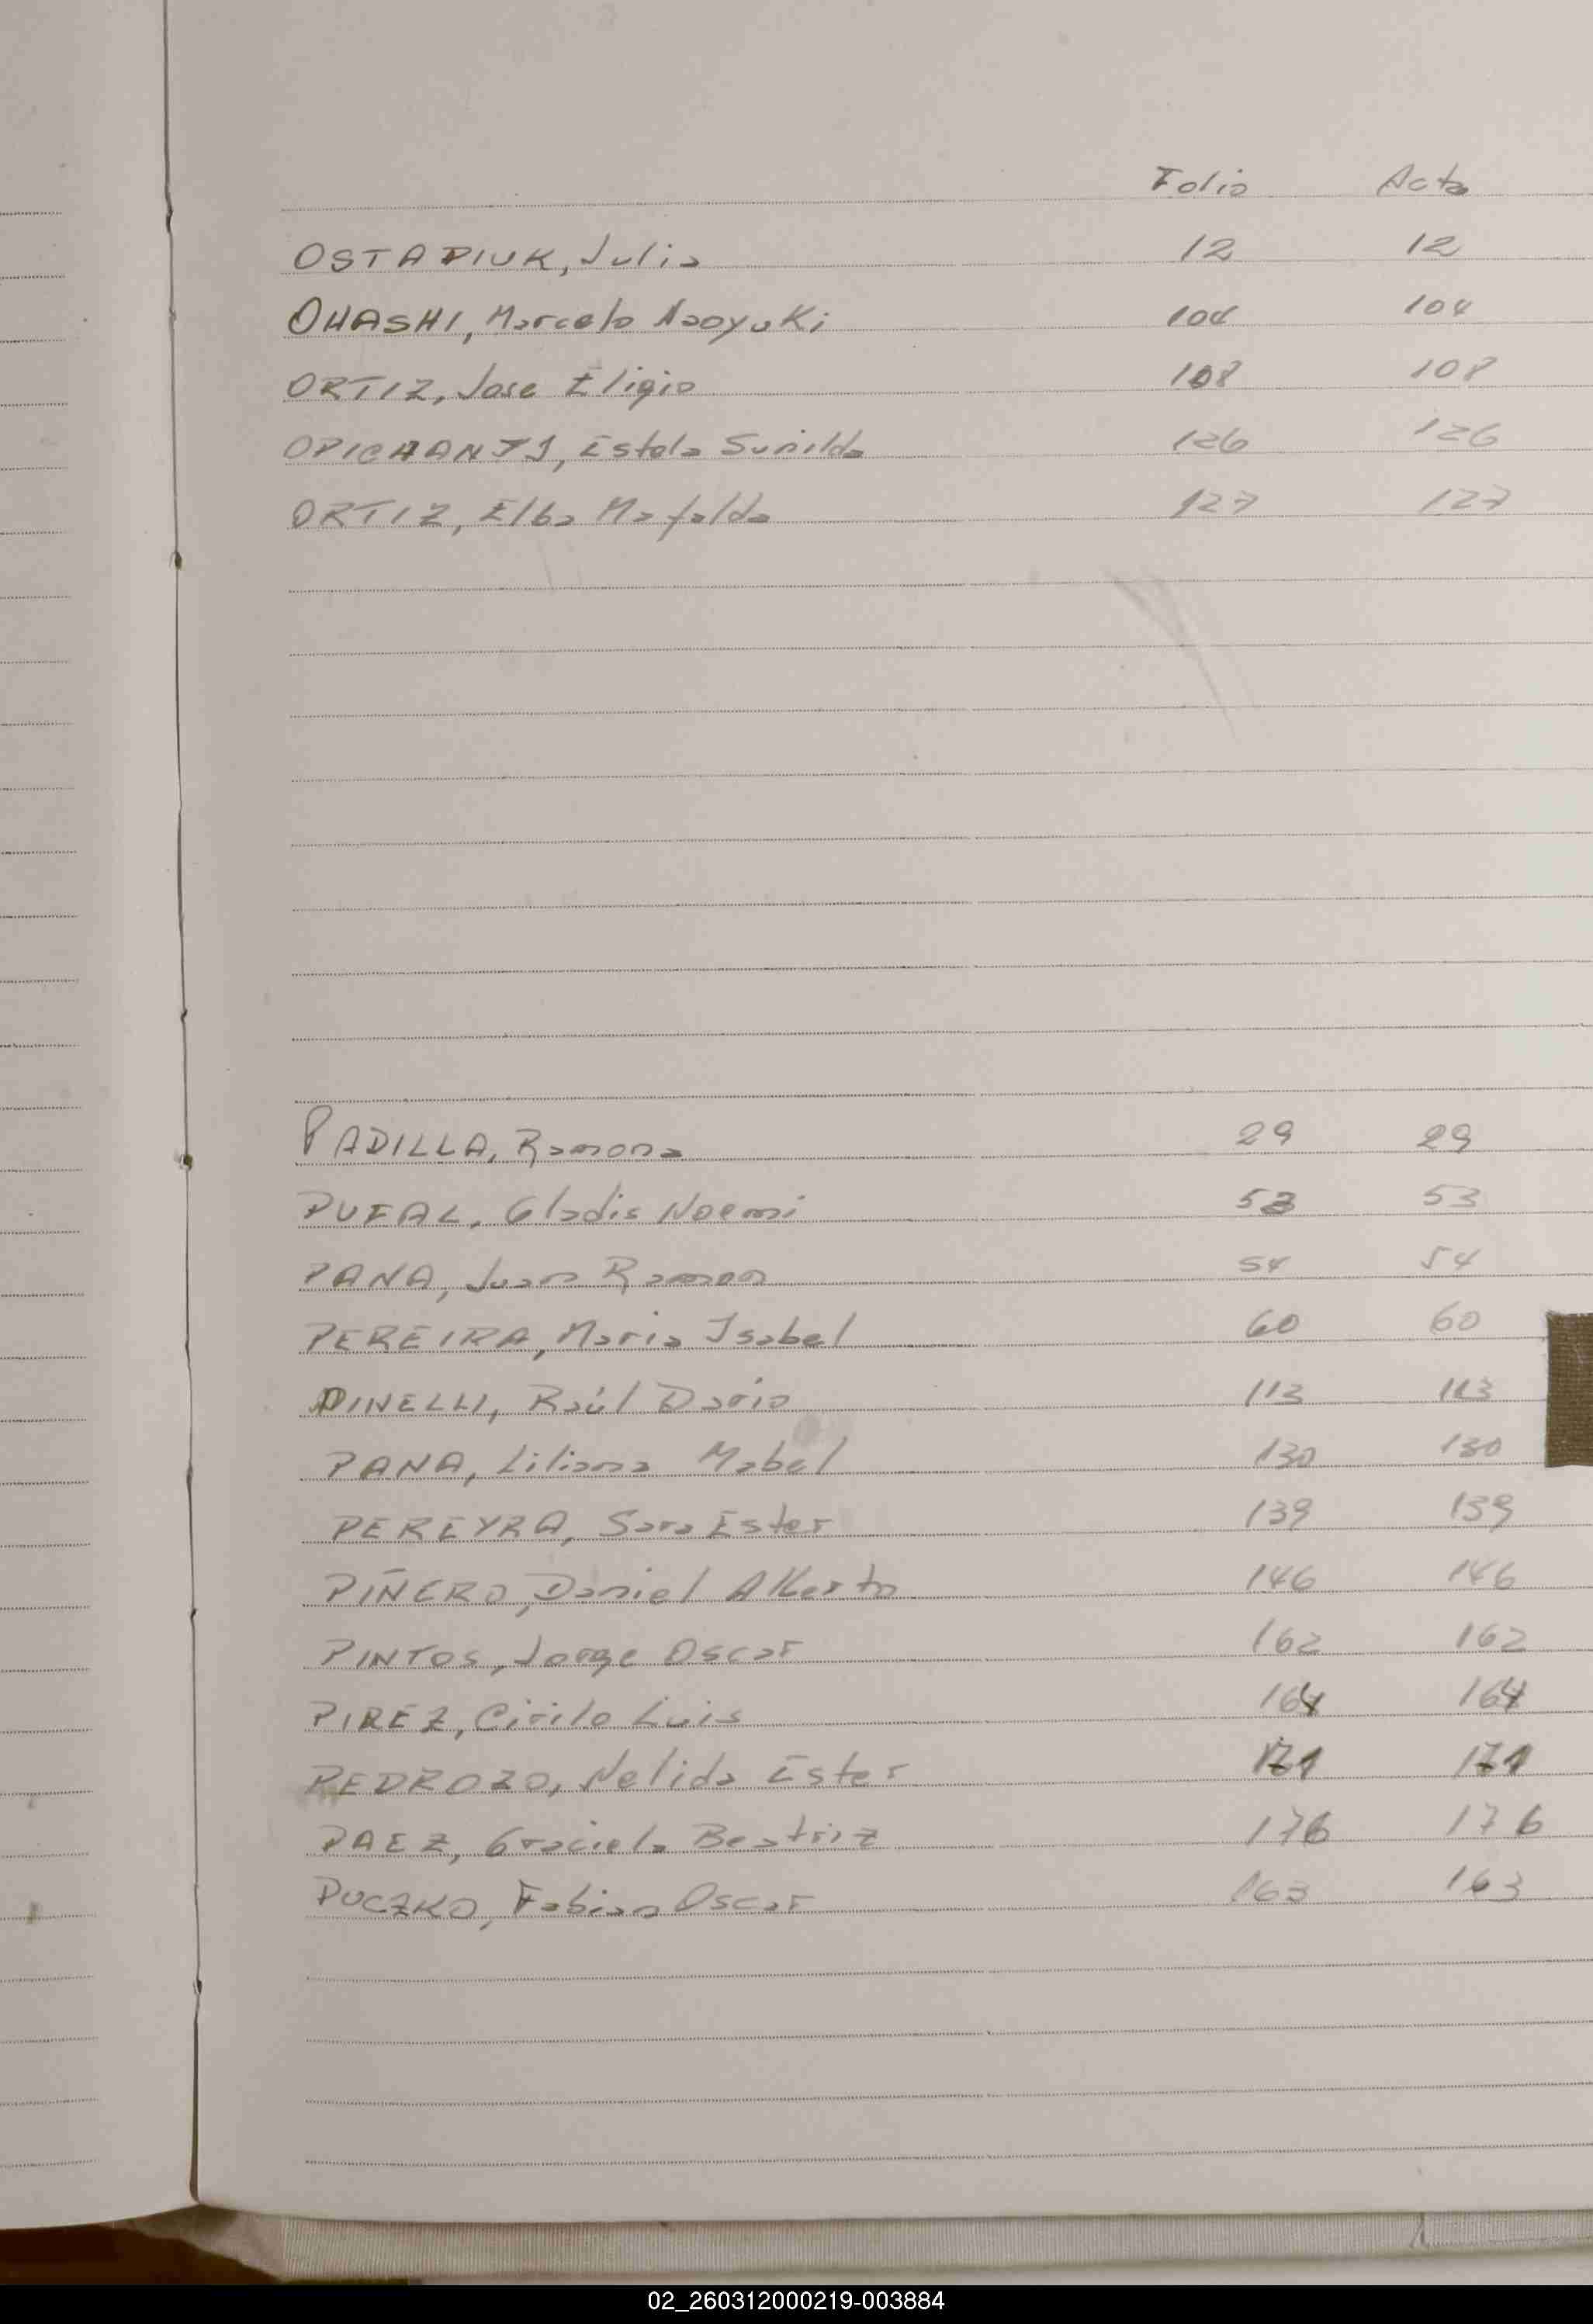 Folio Acta
OSTAPIUK, Julia 12 12
OHASHI, Marcelo Naoyuki 104 104
ORTIZ, Jose Eligio 108 108
OPICHANYJ, Estela Sunilda 126 126
ORTIZ, Elba Mafalda 127 127
PADILLA, Ramona 29 29
PUFAL, Gladis Noemi 53 53
PANA, Juan Ramon 54 54
PEREIRA, Maria Isabel 60 60
PINELLI, Raúl Dario 113 113
PANA, Liliana Mabel 130 130
PEREYRA, Sara Ester 139 139
PIÑERO, Daniel Alberto 146 146
PINTOS, Jorge Oscar 162 162
PIREZ, Cirilo Luis 164 164
PEDROZO, Nelida Ester 171 171
PAEZ, Graciela Beatriz 176 176
PUCZKO, Fabian Oscar 163 163
02_260312000219-003884